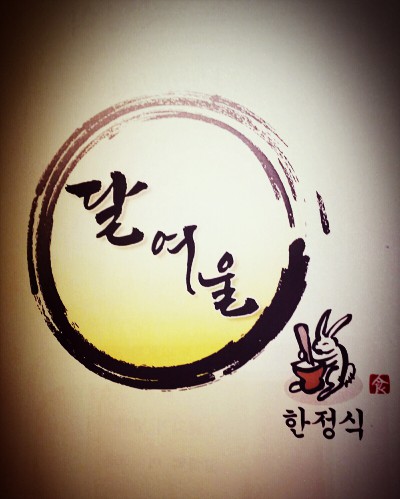 달여울
食
한정식